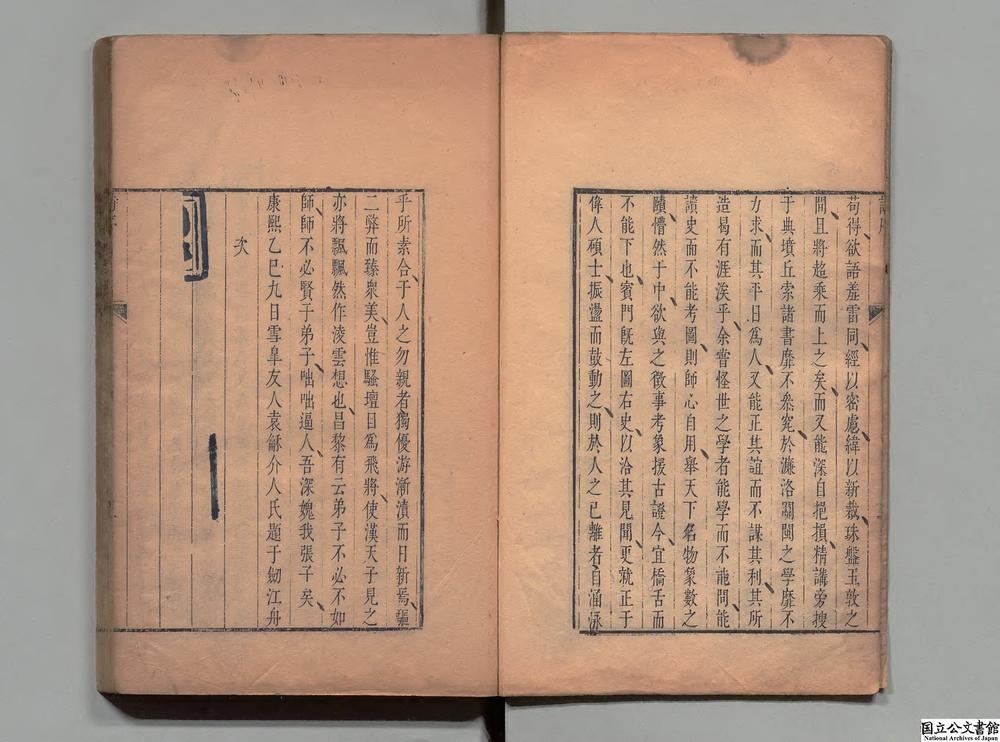 苟得欲語羞雷同經以密慮緯以新裁珠盤玉敦之
間且將超乘而上之矣而又能深自挹損精講旁搜
于典墳丘索諸書靡不泉究於濂洛關閩之學靡不
力求而其平日為人又能正其誼而不謀其利其所
造曷有涯涘乎余嘗怪世之學者能學而不能問能
讀史而不能考圖則師心自用舉天下名物象數之
賾懵然于中欲與之徵事考象援古證今宜橋舌而
不能下也賓門旣左圖右史以洽其見聞更就正于
偉人碩士振盪而鼓動之則於人之已離者自涵泳
乎所素合于人之勿親者獨優游漸漬而日新焉驅
二弊而臻衆美豈惟騷壇目為飛將使漢天子見之
亦將飄飄然作淩雲想也昌黎有云弟子不必不如
師師不必賢于弟子咄咄逼人吾深媿我張子矣
康熙乙巳九日雪臯友人袁龢介人氏題于劒江舟
次
国立公文書館
National Archives of Japan